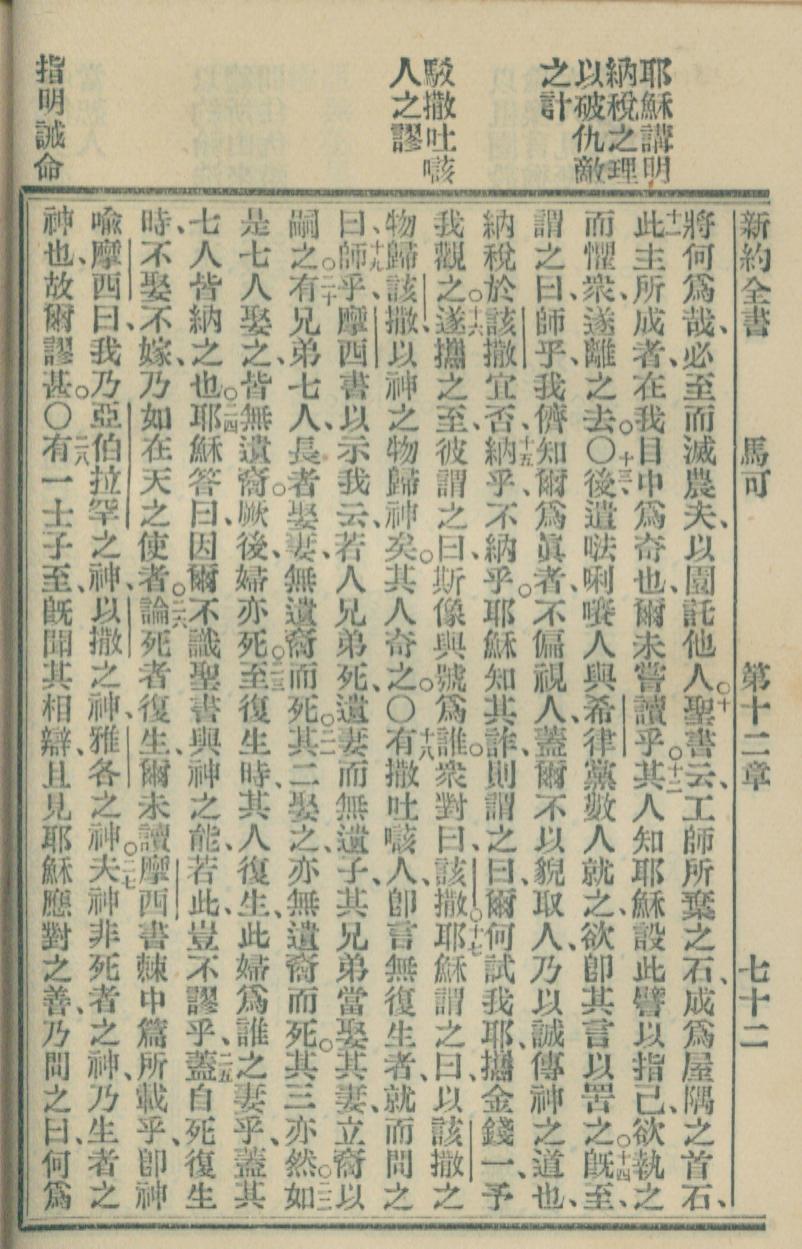 耶穌講明
納稅之理
以破仇敵
之計
駁撒吐咳
人之謬
指明誡命
新約全書 馬可 第十二章 七十二
將何爲哉、必至而滅農夫、以園託他人。十聖書云、工師所棄之石、成爲屋隅之首石、
十一此主所成者、在我目中爲奇也、爾未嘗讀乎。十二其人知耶穌設此譬以指己、欲執之
而懼衆、遂離之去。〇十三後遣㳒唎㘔人與希律黨數人就之、欲卽其言以罟之。十四旣至、
謂之曰、師乎、我儕知爾爲眞者、不偏視人、蓋爾不以貌取人、乃以誠傳神之道也、
納稅於該撒宜否、十五納乎、不納乎。耶穌知其詐、則謂之曰、爾何試我耶、攜金錢一、予
我觀之。十六遂攜之至、彼謂之曰、斯像與號爲誰。衆對曰、該撒。十七耶穌謂之曰、以該撒之
物歸該撒、以神之物歸神矣。其人奇之。〇十八有撒吐咳人、卽言無復生者、就而問之
曰、十九師乎、摩西書以示我云、若人兄弟死、遺妻而無遺子、其兄弟當娶其妻、立裔以
嗣之。二十有兄弟七人、長者娶妻、無遺裔而死。二一其二娶之、亦無遺裔而死。其三亦然。二二如
是七人娶之、皆無遺裔。厥後、婦亦死。二三至復生時、其人復生、此婦爲誰之妻乎、蓋其
七人皆納之也。二四耶穌答曰、因爾不識聖書與神之能、若此、豈不謬乎、二五蓋自死復生
時、不娶不嫁、乃如在天之使者。二六論死者復生、爾未讀摩西書棘中篇所載乎、卽神
喩摩西曰、我乃亞伯拉罕之神、以撒之神、雅各之神。二七夫神非死者之神、乃生者之
神也、故爾謬甚。〇二八有一士子至、旣聞其相辯、且見耶穌應對之善、乃問之曰、何爲